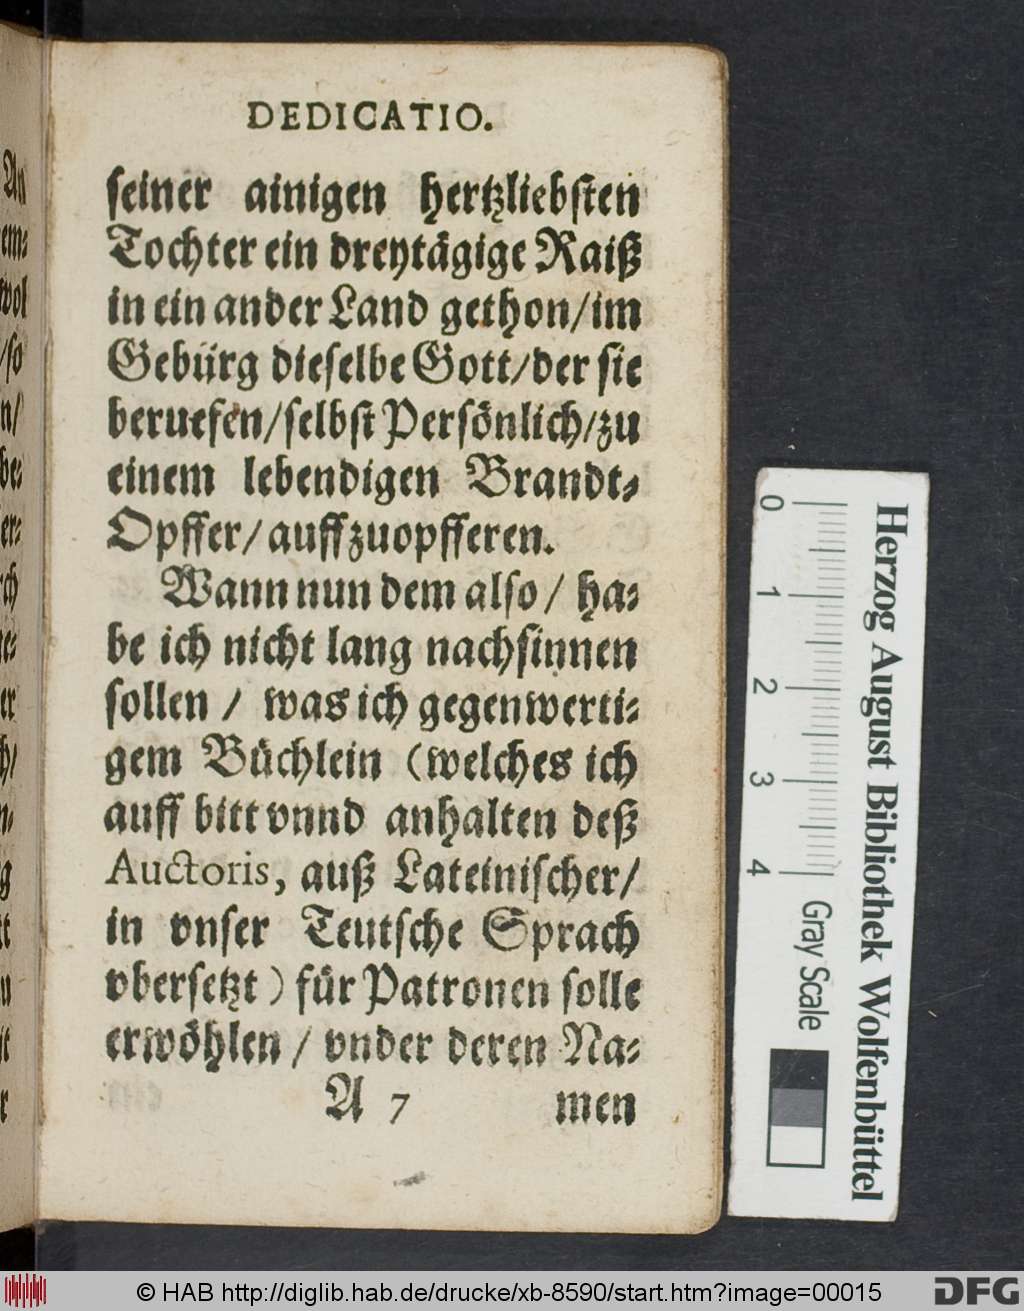 DEDICATIO.
seiner ainigen hertzliebsten
Tochter ein dreytägige Raiß
in ein ander Land gethon/im
Gebürg dieselbe Gott/der sie
beruefen/selbst Persönlich/zu
einem lebendigen Brandt-
Opffer/auffzuopfferen.
Wann nun dem also/ ha-
be ich nicht lang nachsinnen
sollen / was ich gegenwerti-
gem Büchlein (welches ich
auff bitt vnnd anhalten deß
Auctoris, auß Lateinischer/
in vnser Teutsche Sprach
vbersetzt) für Patronen solle
erwöhlen / vnder deren Na-
A 7 men
0 1 2 3 4 Gray Scale
Herzog August Bibliothek Wolfenbüttel
© HAB http://diglib.hab.de/drucke/xb-8590/start.htm?image=00015
DFG